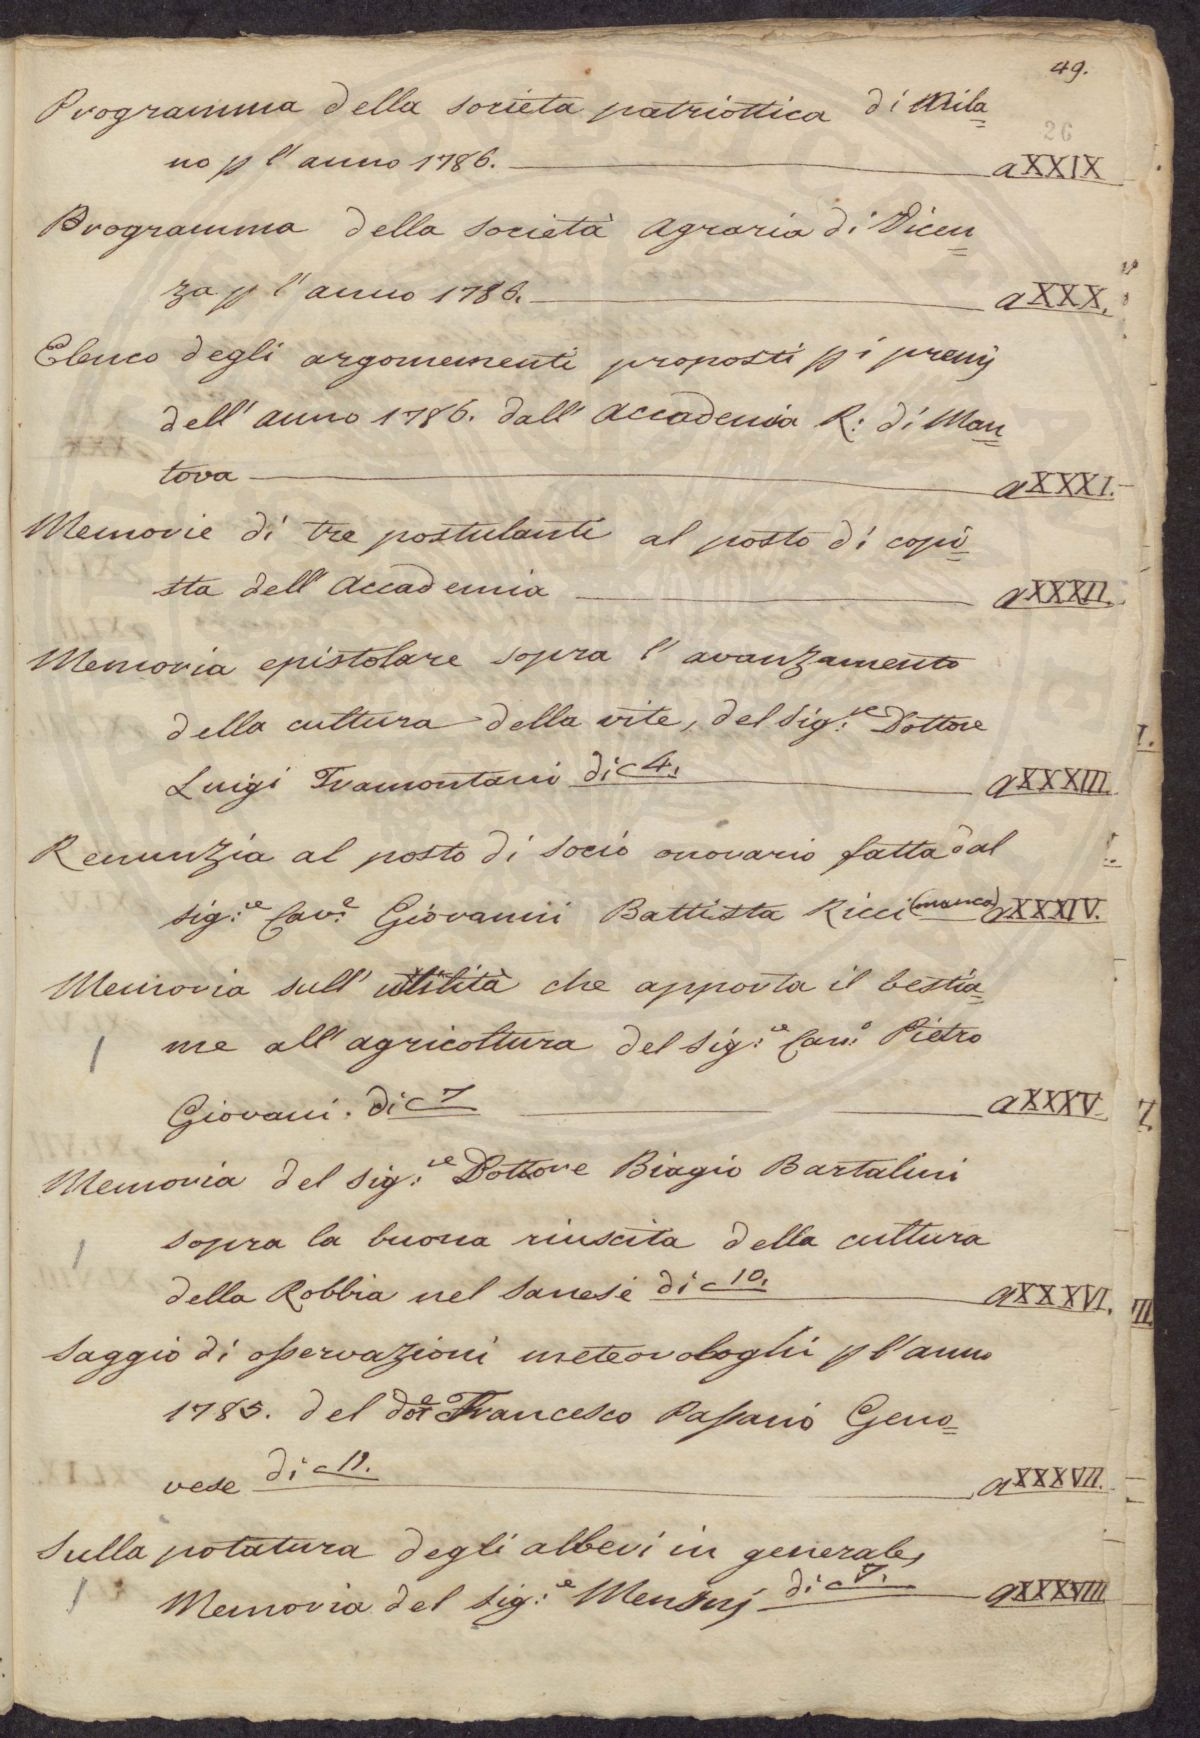 49.
26
Programma della società patriottica di Mila=
no p l'anno 1786. a XXIX
Programma della società agraria di Vicen=
za p l'anno 1786. a XXX.
Elenco degli argomementi proposti p i premj
dell'anno 1786. dall'Accademia R: di Man=
tova a XXXI.
Memorie di tre postulanti al posto di copi=
sta dell'Accademia a XXXII.
Memoria epistolare sopra l'avanzamento
della cultura della vite, del Sig.re Dottore
Luigi Tramontani di c 4. a XXXIII.
Renunzia al posto di socio onorario fatta dal
sig.re Cav.e Giovanni Battista Ricci (manca) a XXXIV.
Memoria sull'utilità che apporta il bestia=
me all'agricoltura del Sig.re Cav.e Pietro
Giovani. di c 7 a XXXV
Memoria del Sig.re Dottore Biagio Bartalini
sopra la buona riuscita della cultura
della Robbia nel Sanese di c 10. a XXXVI.
Saggio di osservazioni meteorologhi p l'anno
1785. del Dot.e Francesco Passano Geno=
vese di c 11. a XXXVII.
Sulla potatura degli alberi in generale,
Memoria del Sig.re Mensuj di c 7. a XXXVIII